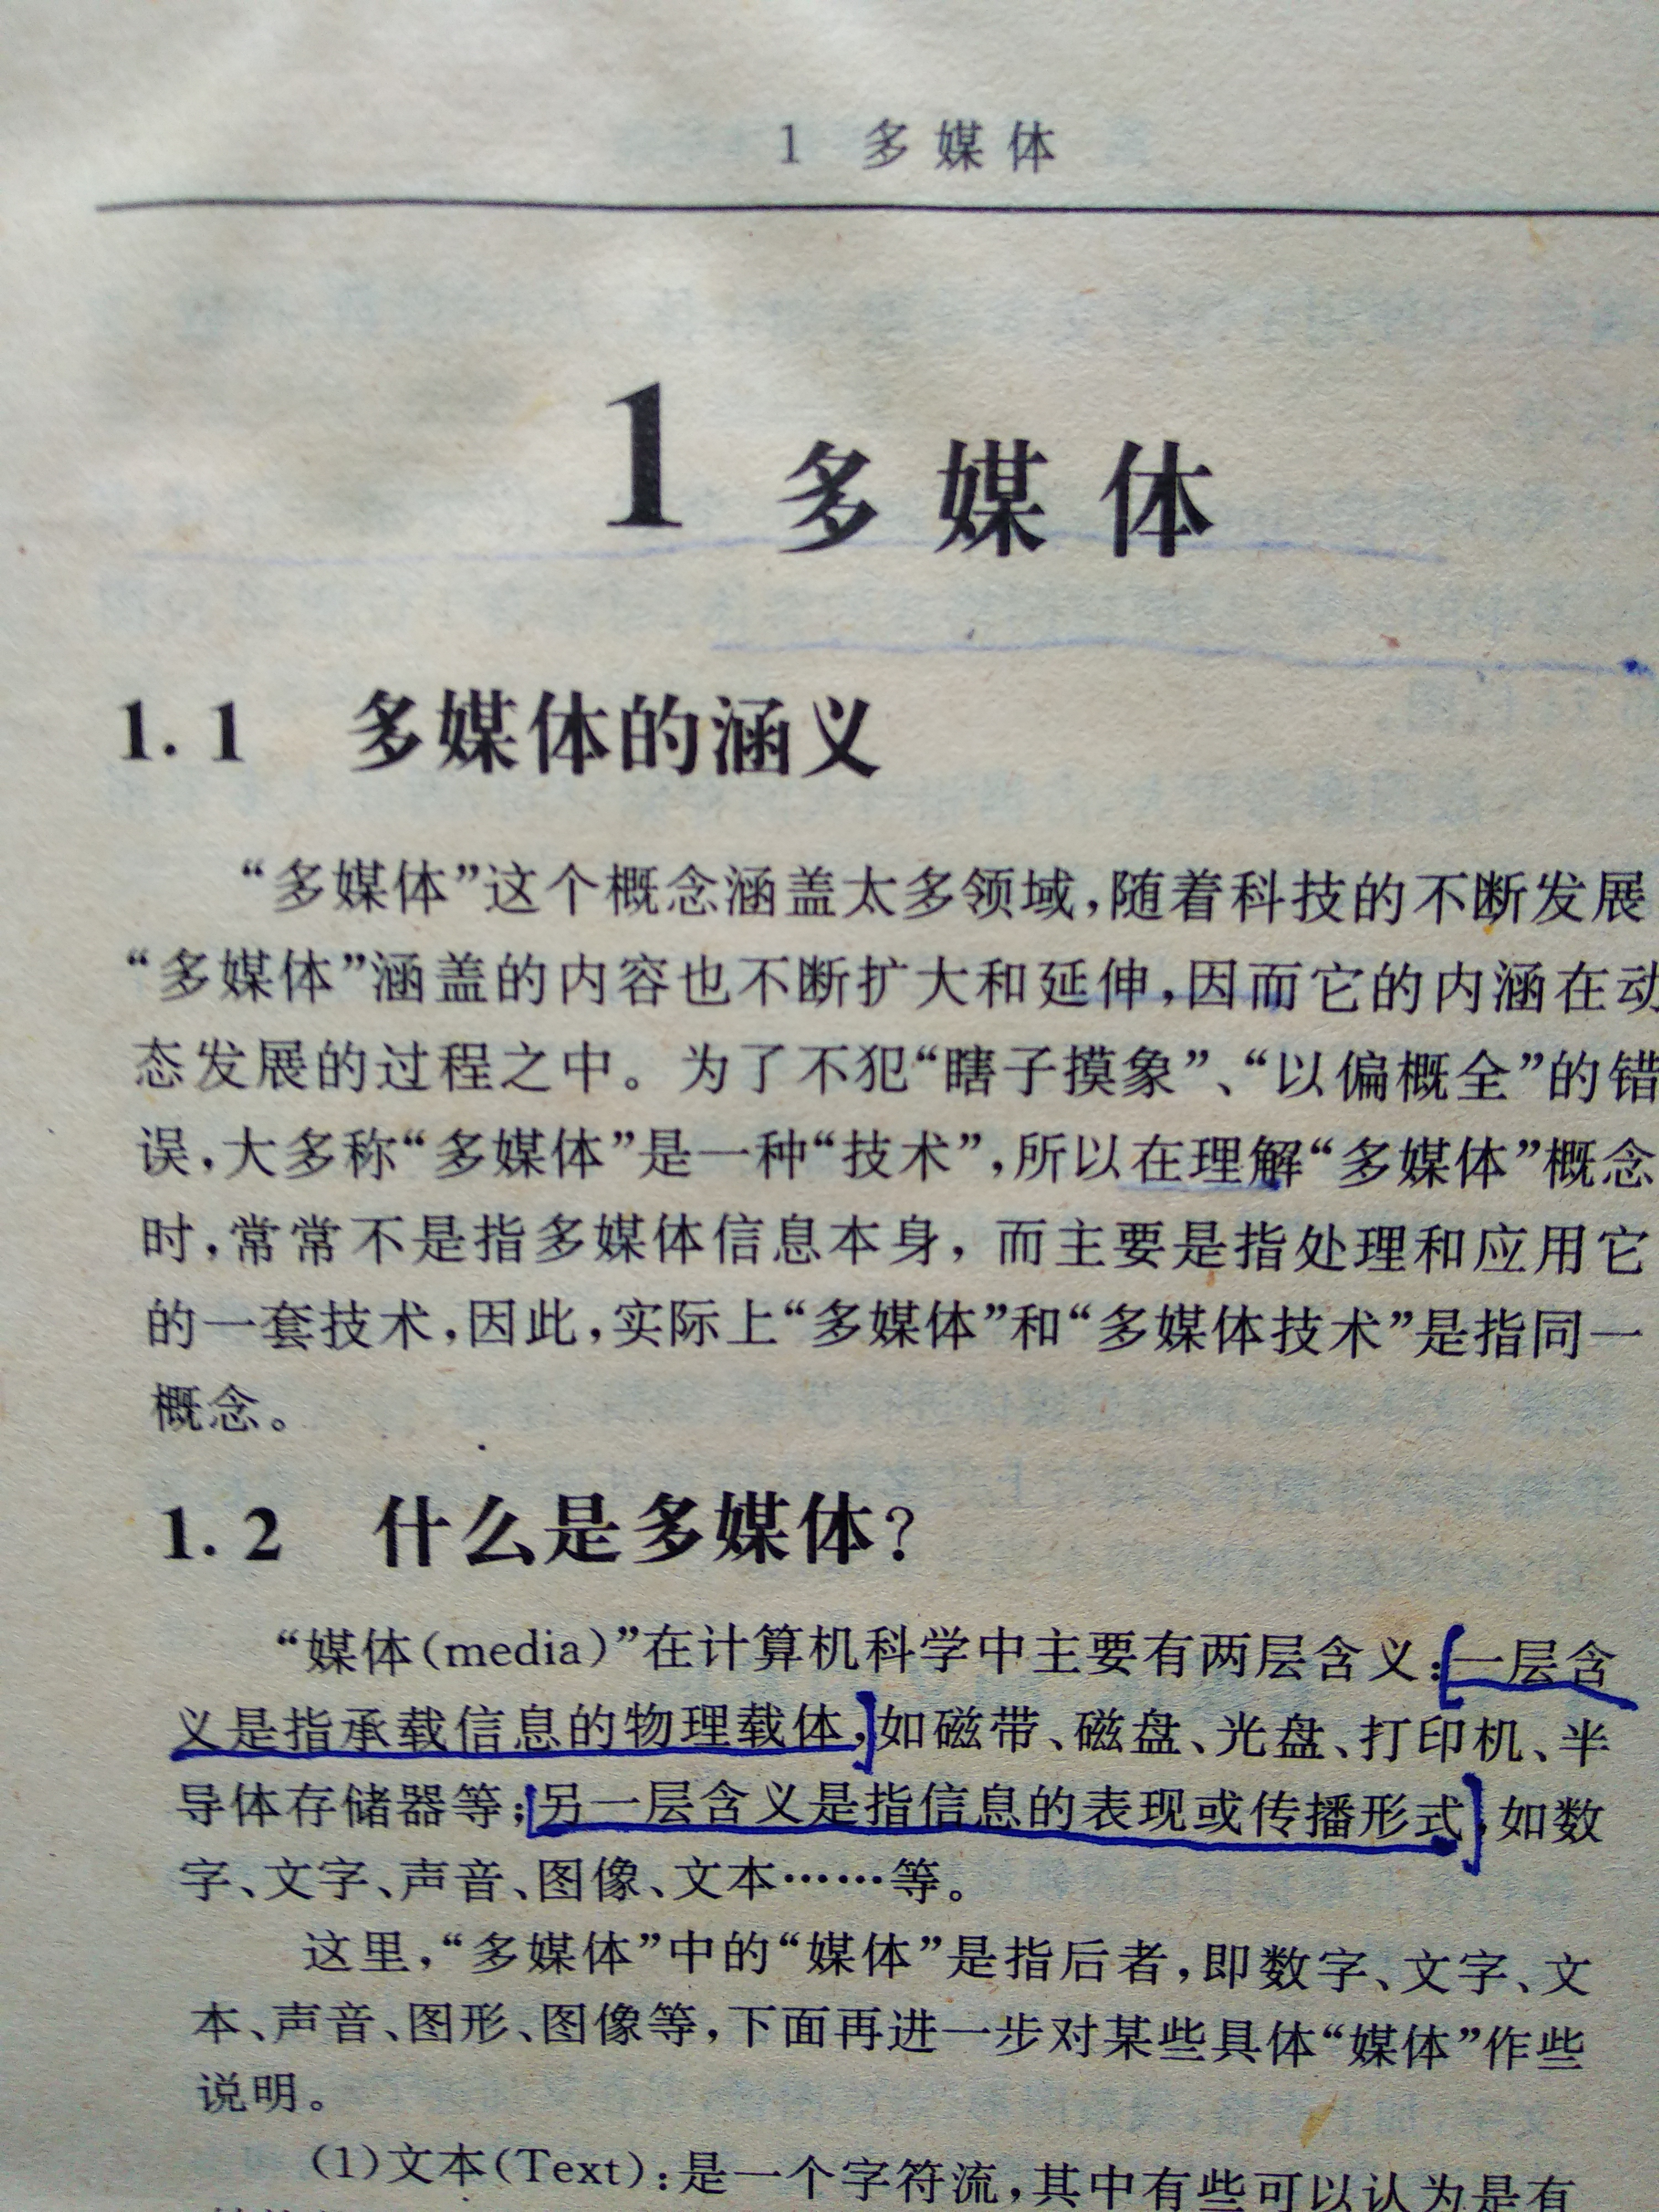 1 多媒体
1 多媒体
1.1 多媒体的涵义
“多媒体”这个概念涵盖太多领域,随着科技的不断发展
“多媒体”涵盖的内容也不断扩大和延伸,因而它的内涵在动
态发展的过程之中。为了不犯“瞎子摸象”、“以偏概全”的错
误,大多称“多媒体”是一种“技术”,所以在理解“多媒体”概念
时,常常不是指多媒体信息本身,而主要是指处理和应用它
的一套技术,因此,实际上“多媒体”和“多媒体技术”是指同一
概念。
1.2 什么是多媒体?
“媒体(media)”在计算机科学中主要有两层含义:一层含
义是指承载信息的物理载体,如磁带、磁盘、光盘、打印机、半
导体存储器等;另一层含义是指信息的表现或传播形式,如数
字、文字、声音、图像、文本……等。
这里,“多媒体”中的“媒体”是指后者,即数字、文字、文
本、声音、图形、图像等,下面再进一步对某些具体“媒体”作些
说明。
(1)文本(Text):是一个字符流,其中有些可以认为是有